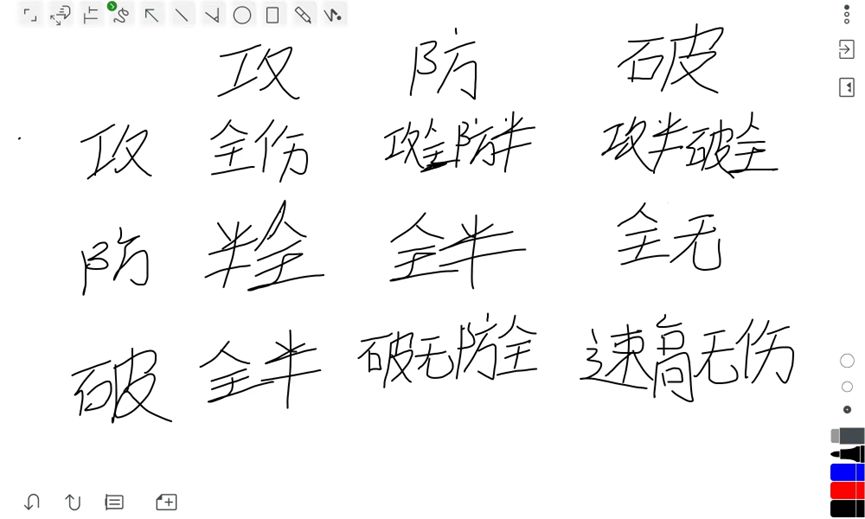 攻 防 破
攻 全伤 攻全防半 攻半破全
防 半全 全半 全无
破 全半 破无防全 速高无伤